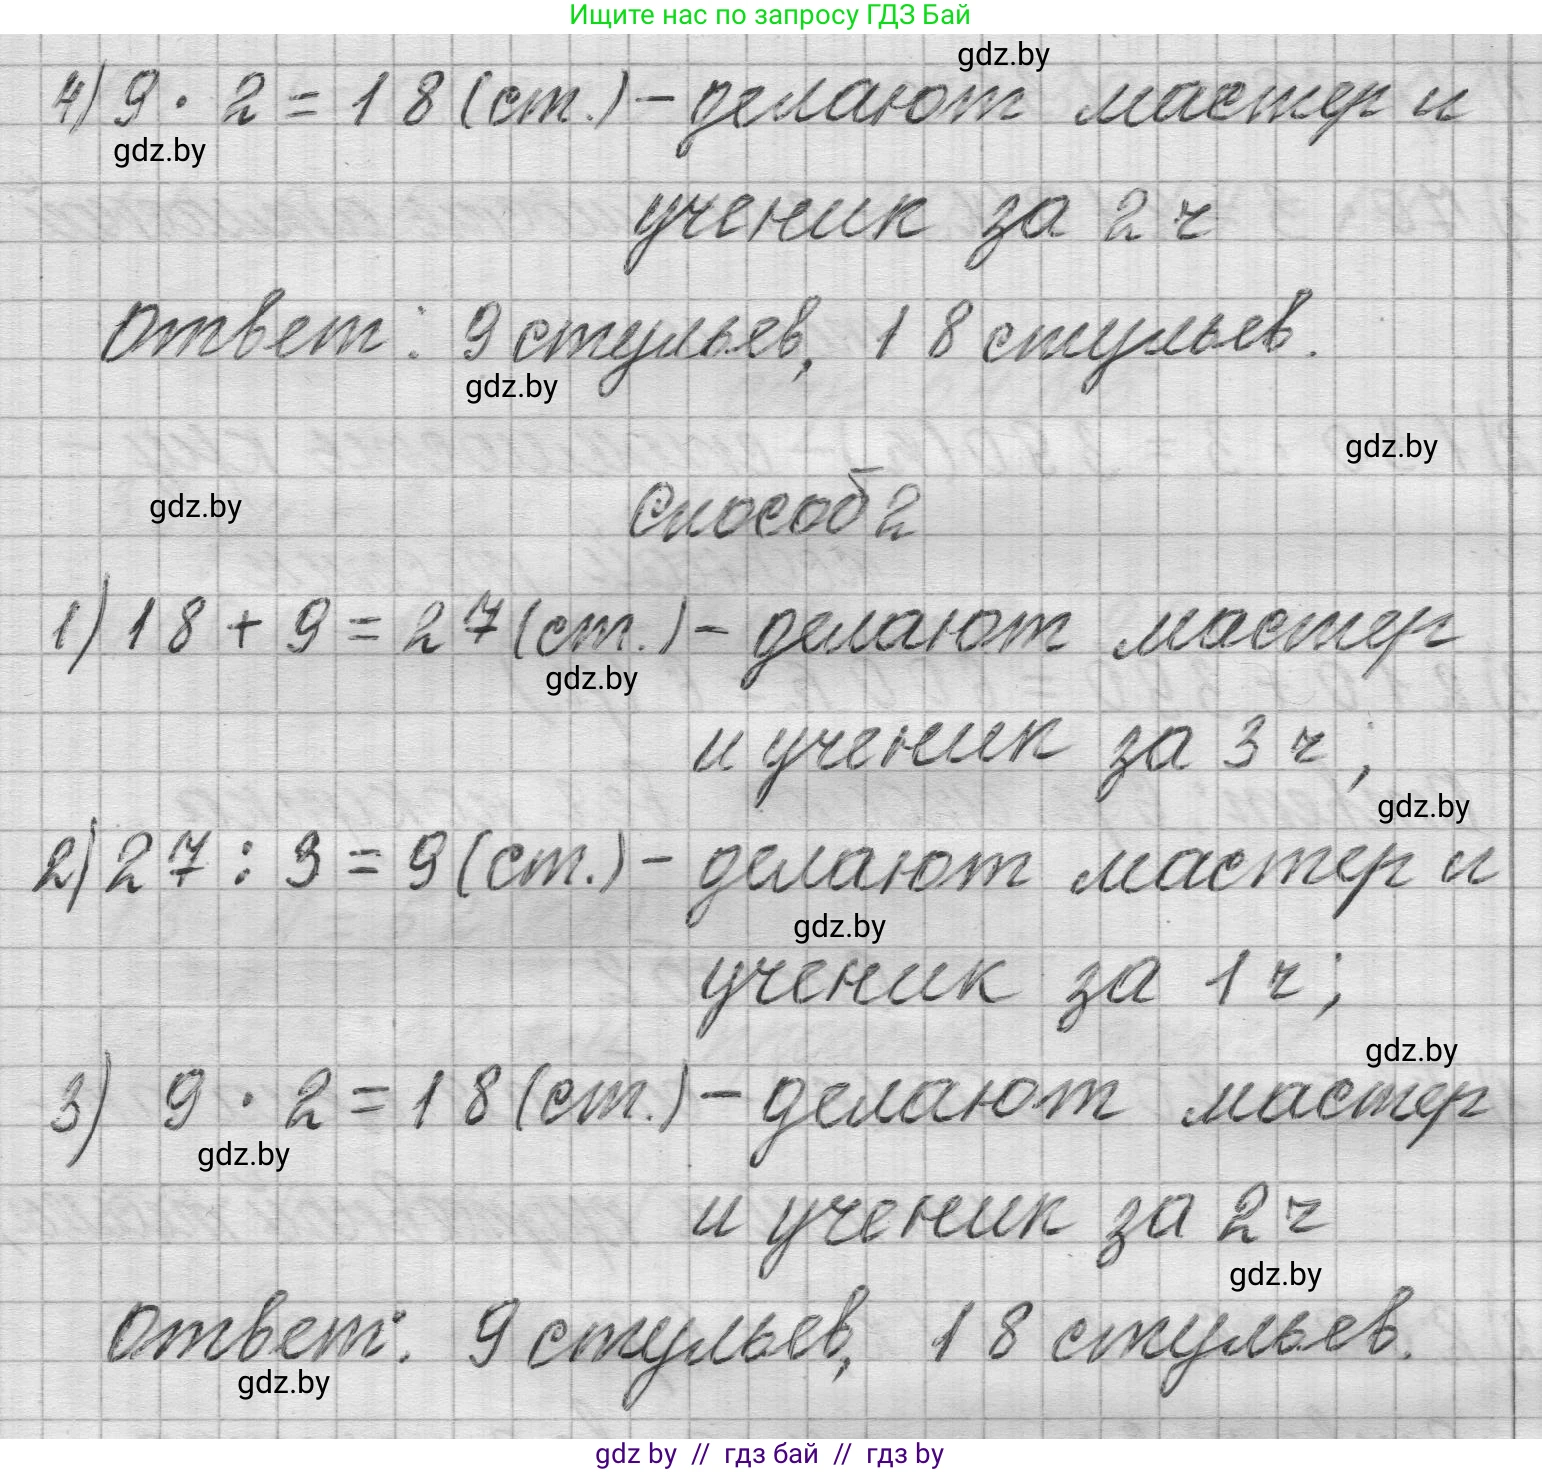 Ищите нас по запросу ГДЗ Бай
gdz.by
4) 9 · 2 = 18 (ст.) – делают мастер и
gdz.by
ученик за 2 ч
Ответ: 9 стульев, 18 стульев.
gdz.by
gdz.by
gdz.by
Способ 2
1) 18 + 9 = 27 (ст.) – делают мастер
gdz.by
и ученик за 3 ч;
gdz.by
2) 27 : 3 = 9 (ст.) – делают мастер и
gdz.by
ученик за 1 ч;
gdz.by
3) 9 · 2 = 18 (ст.) – делают мастер
gdz.by
и ученик за 2 ч
gdz.by
Ответ: 9 стульев, 18 стульев.
gdz.by
gdz by // гдз бай // гдз by